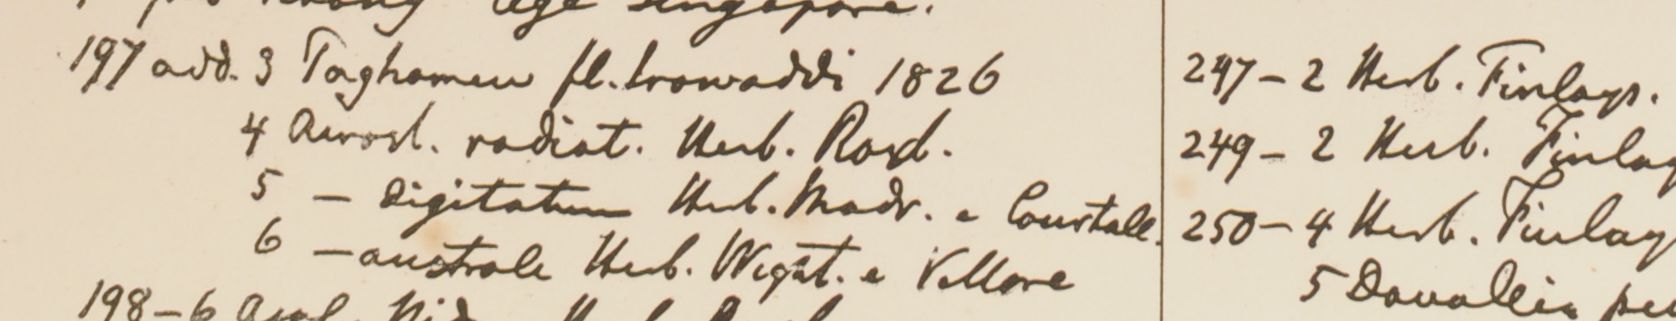 Singapore.
197 add. 3 Taghamew fl. Irawaddi 1826
4 Acrost. radiat. Herb. Roxb.
5 — digitatum Herb. Madr. e Courtall.
6 — australe Herb. Wight. e Vellore
198 – 6
247 – 2 Herb. Finlays.
249 – 2 Herb. Finlay
250 – 4 Herb. Finlay
5 Davallia